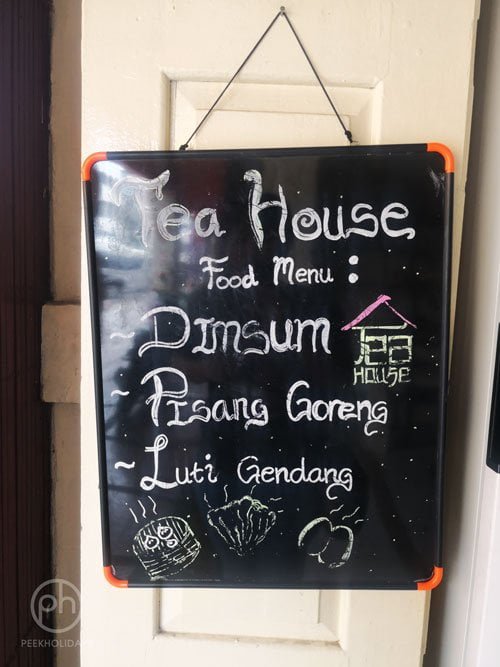 Tea House
Food Menu :
~ Dimsum
Tea
House
~ Pisang Goreng
~ Luti Gendang
ph
PEEKHOLIDA